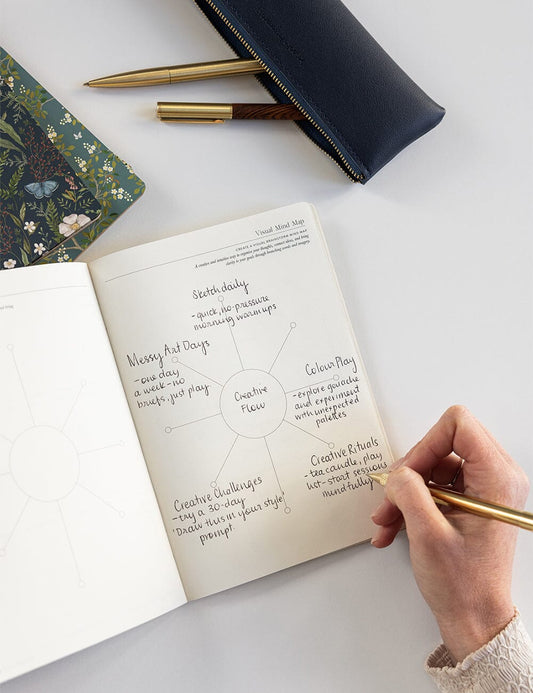 Visual Mind Map
CREATE A VISUAL BRAINSTORM MIND MAP
A creative and intuitive way to organise your thoughts, connect ideas, and bring
clarity to your goals through branching words and imagery.
Sketch daily
- quick, no-pressure
morning warmups
Messy Art Days
- one day
a week - no
briefs, just play
Colour Play
- explore gouache
and experiment
with unexpected
palettes
Creative
Flow
Creative Rituals
- tea, candle, play
list - start session
mindfully
Creative Challenges
- try a 30-day
'Draw this in your style'
prompt.